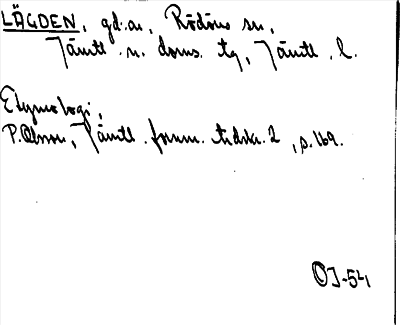 LÄGDEN, gd.ar, Rödöns sn,
Jämtl. n. doms. tg, Jämtl. l.
Etymologi,
P. Olsson, Jämtl. fornm. tidskr. 2, s. 169.
OJ-54